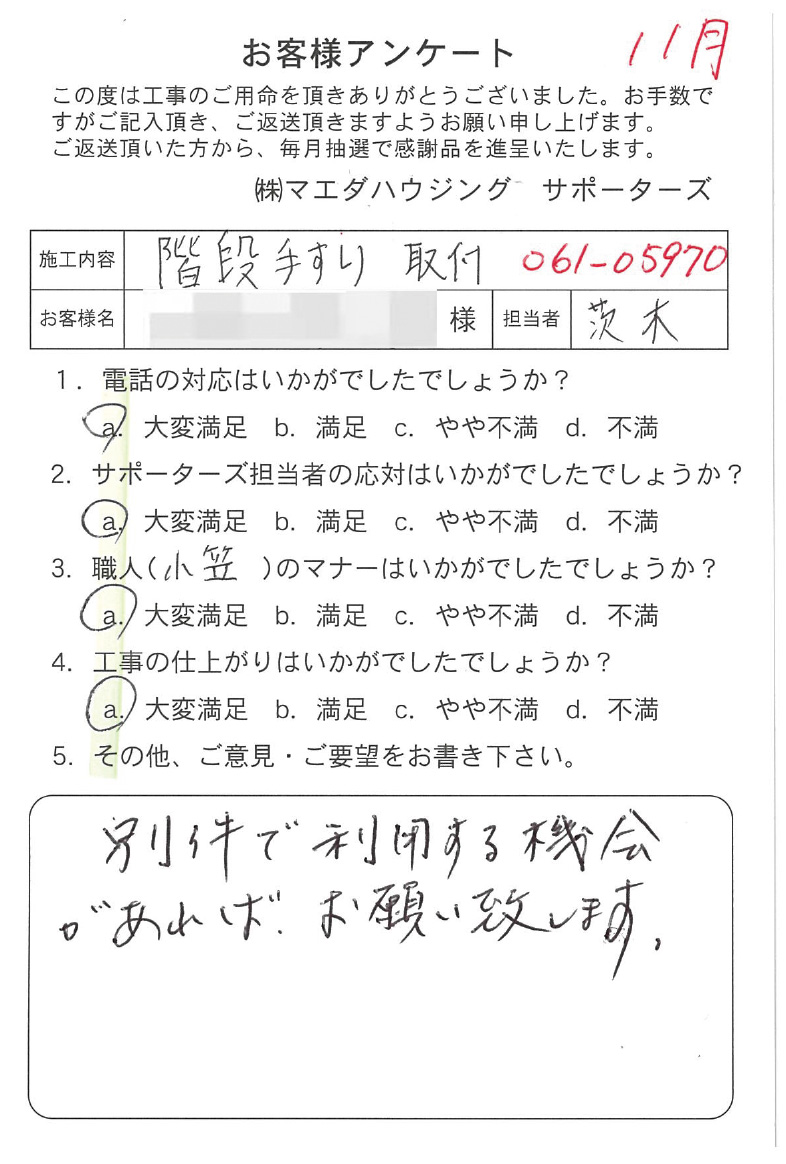 お客様アンケート 11月
この度は工事のご用命を頂きありがとうございました。お手数で
すがご記入頂き、ご返送頂きますようお願い申し上げます。
ご返送頂いた方から、毎月抽選で感謝品を進呈いたします。
㈱マエダハウジング サポーターズ
施工内容 階段手すり 取付 061-05970
お客様名 様 担当者 茨木
1. 電話の対応はいかがでしたでしょうか?
a. 大変満足 b. 満足 c. やや不満 d. 不満
2. サポーターズ担当者の応対はいかがでしたでしょうか?
a. 大変満足 b. 満足 c. やや不満 d. 不満
3. 職人(小笠 )のマナーはいかがでしたでしょうか?
a. 大変満足 b. 満足 c. やや不満 d. 不満
4. 工事の仕上がりはいかがでしたでしょうか?
a. 大変満足 b. 満足 c. やや不満 d. 不満
5. その他、ご意見・ご要望をお書き下さい。
別件で利用する機会
があれば、お願い致します。